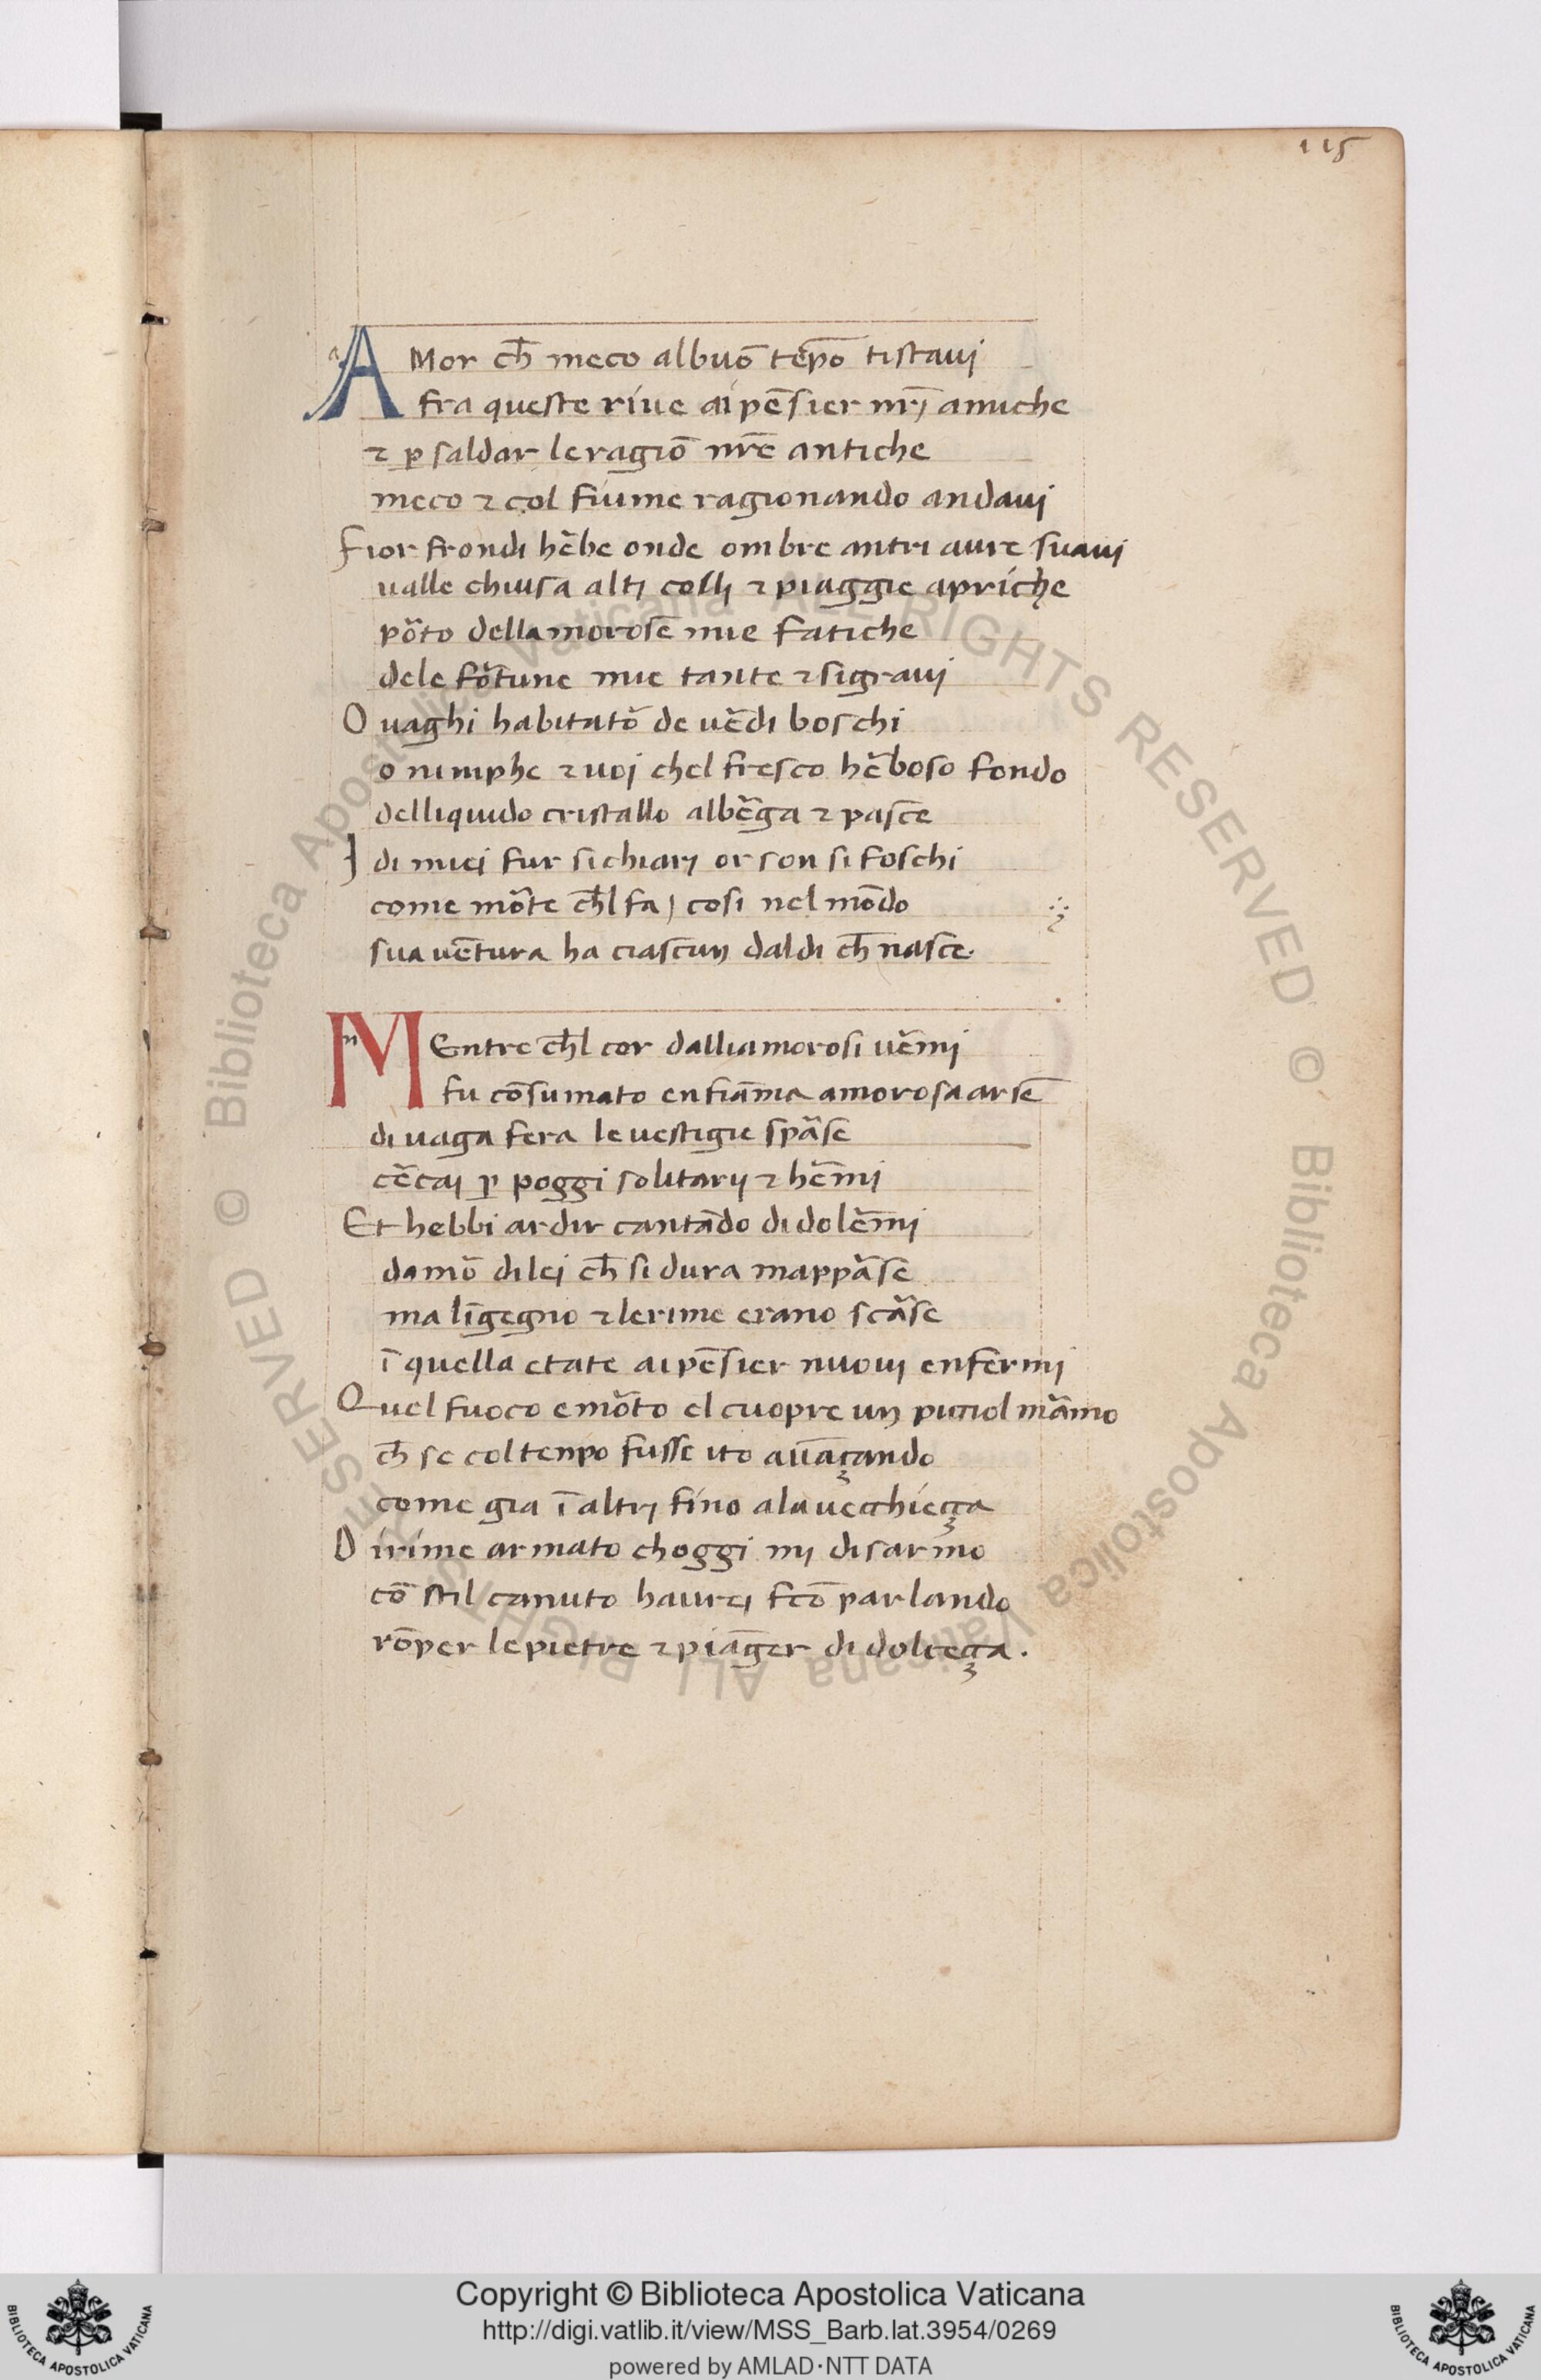 115
AMor ch̄ meco albuō tēpo tistauj
fra queste riue ai pēsier nr̄j amiche
⁊ ꝑ saldar le ragiō nr̄e antiche
meco ⁊ col fiume ragionando andauj
Fior frondi hēbe onde ombre antri aure suauj
ualle chiusa altj collj ⁊ piaggie apriche
pōto dellamorose mie fatiche
dele fōtune mie tante ⁊ sigrauj
O uaghi habitatō de uēdi boschi
o nimphe ⁊ uoj chel fresco hēboso fondo
delliquido cristallo albēga ⁊ pasce
J di miei fur si chiarj or son si foschi
come mōte ch̄l fa / cosi nel mōdo
sua uētura ha ciascun daldi ch̄ nasce.
MEntre ch̄l cor dalliamorosi uēmj
fu cōsumato en fiāma amorosa arse
di uaga fera le uestigie spāse
cēcaj ꝑ poggi solitarij ⁊ hēmi
Et hebbi ardir cantādo di dolēmj
damō di lej ch̄ si dura mappāse
ma līgegno ⁊ le rime erano scāse
ī quella etate ai pēsier nuoui enfermi
Quel fuoco e mōto el cuopre un picciol māmo
ch̄ se col tenpo fusse ito auāçando
come gia ī altrj fino ala uecchieça
Di rime armato choggi mi disarmo
cō stil canuto haurej fcō parlando
rōper le pietre ⁊ piāger di dolceça.
© Biblioteca Apostolica Vaticana ALL RIGHTS RESERVED
© Biblioteca Apostolica Vaticana ALL RIGHTS RESERVED
Copyright © Biblioteca Apostolica Vaticana
http://digi.vatlib.it/view/MSS_Barb.lat.3954/0269
powered by AMLAD·NTT DATA
BIBLIOTECA APOSTOLICA VATICANA
BIBLIOTECA APOSTOLICA VATICANA